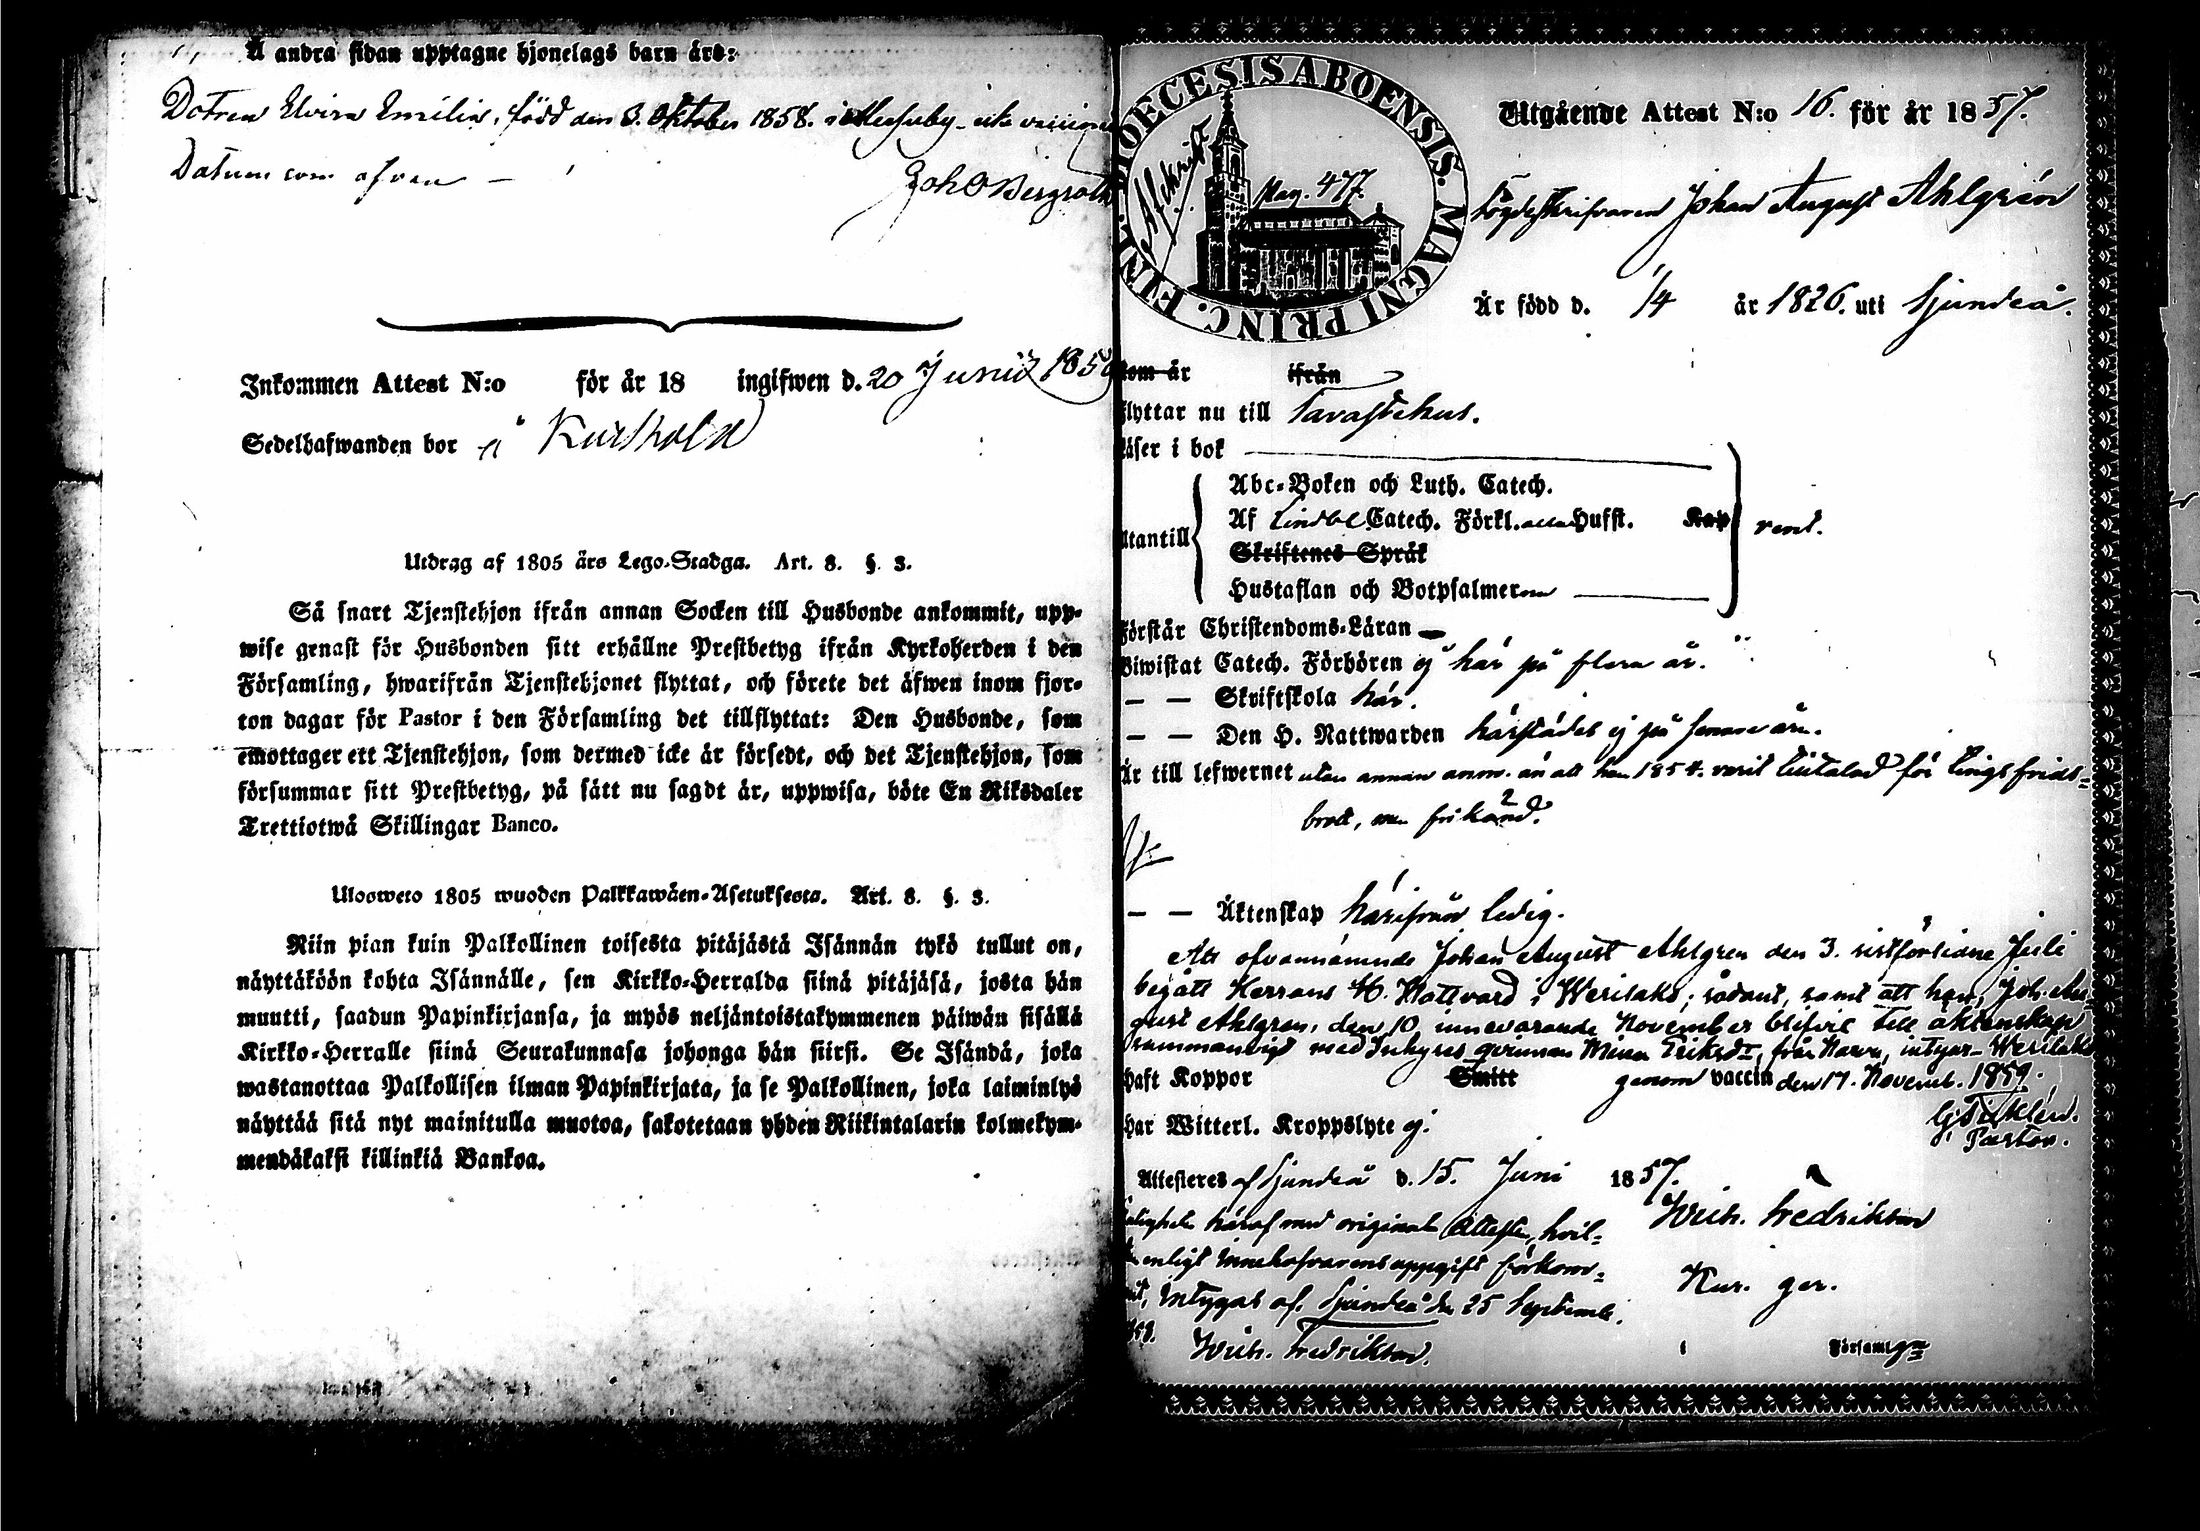 Å andra sidan upptagne hjonelags barn äro:
Dotren Elvira Emilia, född den 3. Oktober 1858. i
Datum som ofvan –
Joh O Bergroth
Inkommen Attest N:o för år 18 ingifwen d. 20 Junii 185
Sedelhafwanden bor å
Utdrag af 1805 års Lego-Stadga. Art. 8. §. 3.
Så snart Tjenstehjon ifrån annan Socken till Husbonde ankommit, upp-
wise genast för Husbonden sitt erhållne Prestbetyg ifrån Kyrkoherden i den
Församling, hwarifrån Tjenstehjonet flyttat, och förete det äfwen inom fjor-
ton dagar för Pastor i den Församling det tillflyttat: Den Husbonde, som
emottager ett Tjenstehjon, som dermed icke är försedt, och det Tjenstehjon, som
försummar sitt Prestbetyg, på sätt nu sagdt är, uppwisa, böte En Riksdaler
Trettiotwå Skillingar Banco.
Uloosweto 1805 wuoden Palkkawäen-Asetuksesta. Art. 8. §. 3.
Niin pian kuin Palkollinen toisesta pitäjästä Isännän tykö tullut on,
näyttäköön kohta Isännälle, sen Kirkko-Herralda siinä pitäjäsä, josta hän
muutti, saadun Papinkirjansa, ja myös neljäntoistakymmenen päiwän sisällä
Kirkko-Herralle siinä Seurakunnasa johonga hän siirsi. Se Isändä, joka
wastanottaa Palkollisen ilman Papinkirjata, ja se Palkollinen, joka laiminlyö
näyttää sitä nyt mainitulla muotoa, sakotetaan yhden Riikintalarin kolmekym-
mendäkaksi killinkiä Bankoa.
DIOECESIS ABOENSIS. MAGNI PRINC. FINL.
Afskrift
Pag. 477.
Utgående Attest N:o 16. för år 1857.
Johan August Ahlgrén
Är född d. 1/4 år 1826. uti Sjundeå.
som är ifrån
flyttar nu till Tavastehus.
läser i bok
Abc-Boken och Luth. Catech.
Utantill Af Lindbl Catech. Förkl. Husst. Kap rent.
Skriftenes Språk
Hustaflan och Botpsalmerne
Förstår Christendoms-Läran
Biwistat Catech. Förhören ej här på flera år.
— — Skriftskola här.
— — Den H. Nattwarden härstädes ej på senare år.
Är till lefwernet utan annan anm. än att han 1854. varit tilltalad för tingsfrids-
brott, men frikänd.
— — Äktenskap härifrån ledig.
Att ofvannämnde Johan August Ahlgren den 3. sistförlidne Juli
begått Herrans H. Nattvard i Wesilaks; sådant, samt att han, Joh. Au-
gust Ahlgren, den 10 innevarande November blifvit till äktenskap
sammanvigd med Inhyses qvinnan Mina Eriksdr, från Narva, intygar Wesilaks
haft Koppor Smitt genom vaccin den 17. Novemb. 1859.
Pastor.
Har Witterl. Kroppslyte ej.
Attesteres af Sjundeå d. 15. Juni 1857.
Wilh. Fredrikson
häraf med original Attesten, hvil-
enligt Innehafvarens uppgift förkom-
mit, intygas af. Sjundeå den 25 Septemb.
Wilh. Fredrikson.